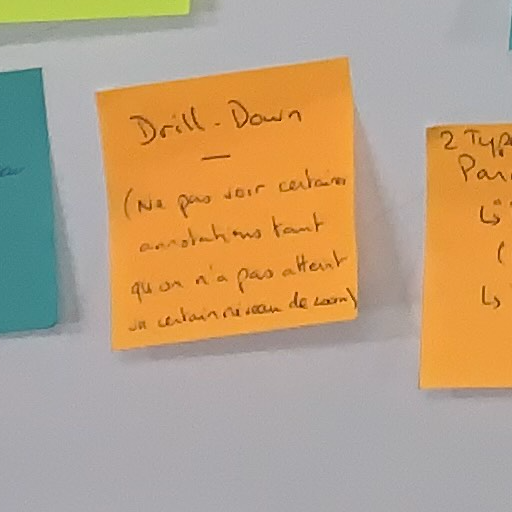 Drill-Down
(Ne pas voir certaines
annotations tant
qu'on n'a pas atteint
un certain niveau de zoom)
2 Typ
Par
↳
(
↳